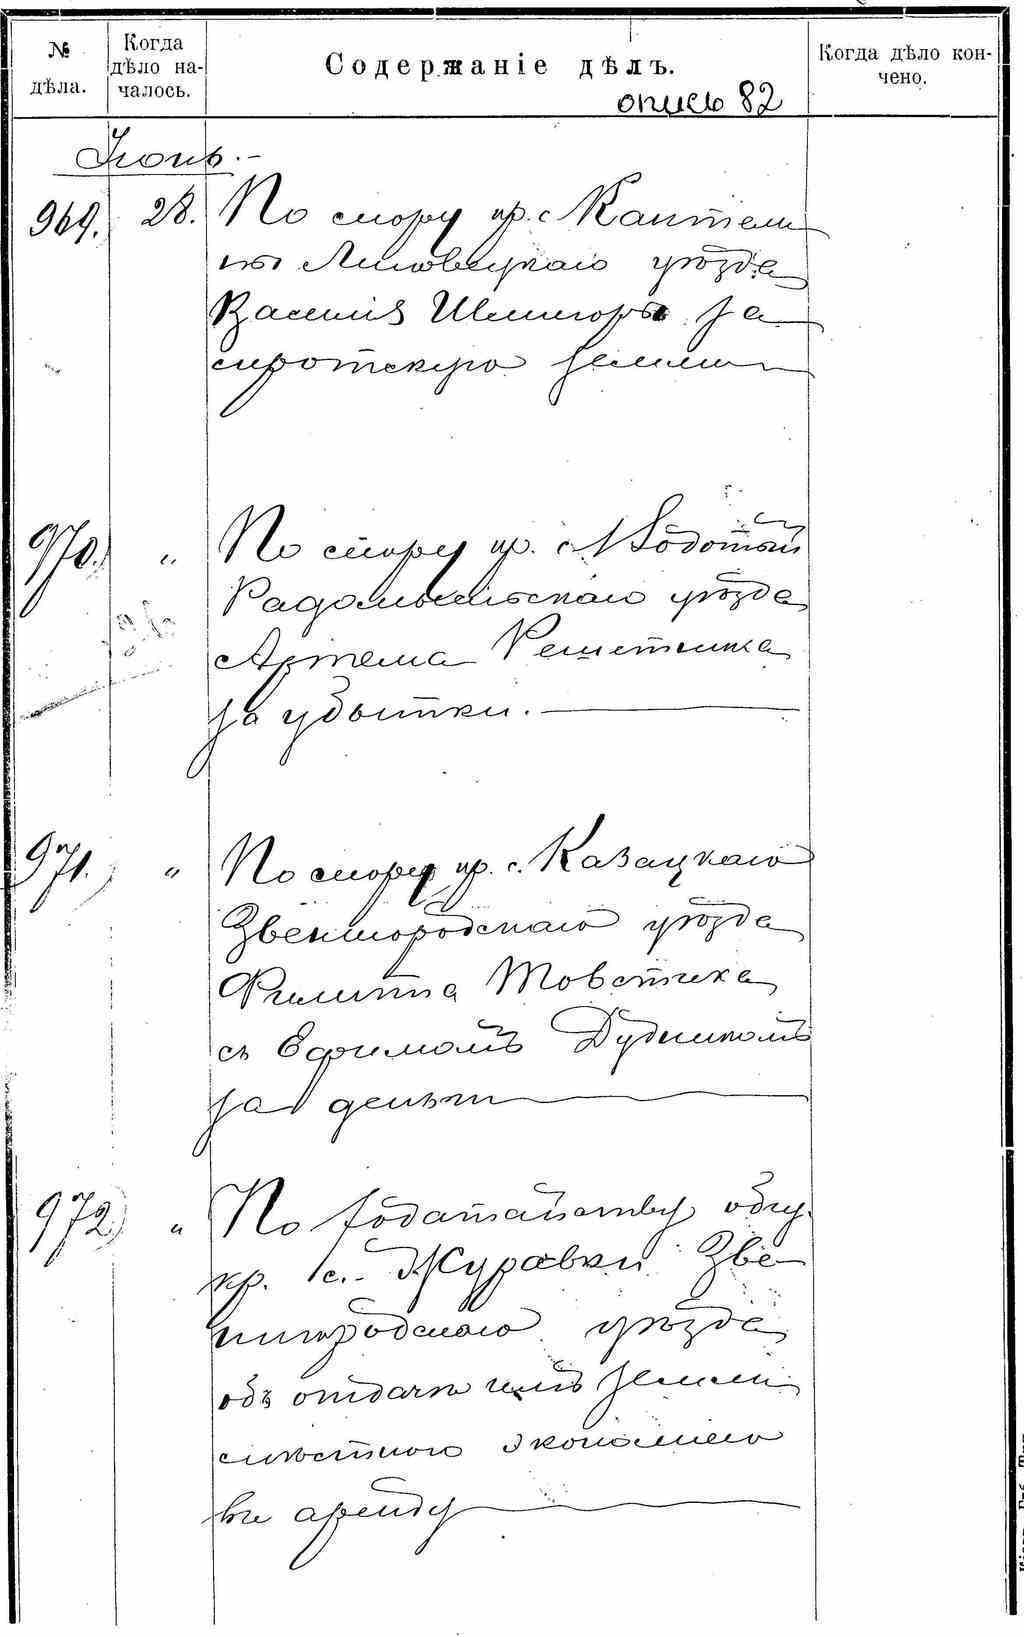 № дѣла.
Когда дѣло на-
чалось.
Содержаніе дѣлъ.
Когда дѣло кон-
чено.
опись 82
Іюнь.
969. 28. По спору кр. с. Кантели
на Липовецкаго уѣзда
Василія Шпигоры за
сиротскую землю
970. " По спору кр. с. Водотый
Радомысльскаго уѣзда
Артема Решетника
за убытки.
971. " По спору кр. с. Казацкаго
Звенигородскаго уѣзда
Филиппа Товстика
съ Ефимомъ Дудникомъ
за деньги
972. " По ходатайству общ.
кр. с. Журавки Зве
нигородскаго уѣзда
объ отдачѣ имъ земли
мѣстною экономіею
въ аренду